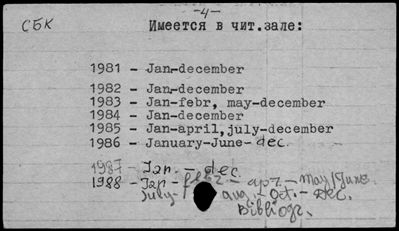 СБК
-4-
Имеется в чит.зале:
1981 - Jan-december
1982 - Jan-december
1983 - Jan-febr, may-december
1984 - Jan-december
1985 - Jan-april, july-december
1986 - January-June- dec.
1987 - Jan - dec.
1988 - Jan - febr - apr - May/June
July - aug. - Oct. - Dec.
Bibliogr.